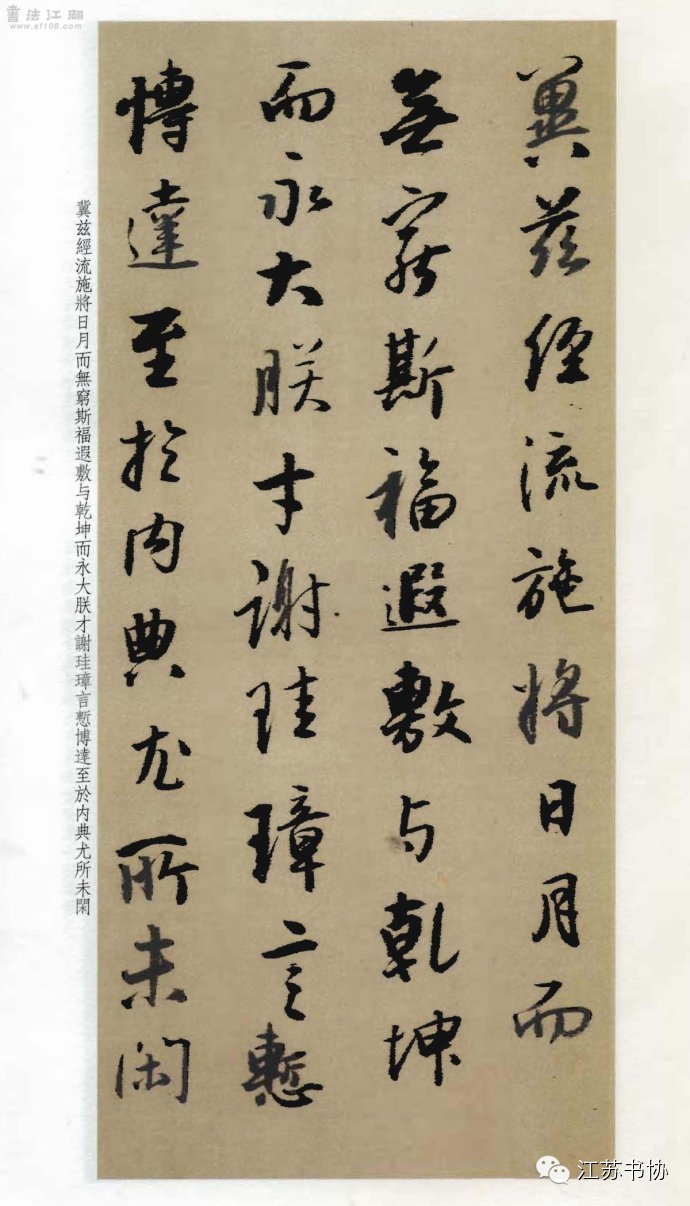 書法江湖
www.sf108.com
冀茲經流施將日月而
無窮斯福遐敷与乾坤
而永大朕才謝珪璋言慙
博達至於内典尤所未閑
冀茲經流施將日月而無窮斯福遐敷与乾坤而永大朕才謝珪璋言慙博達至於内典尤所未閑
江苏书协